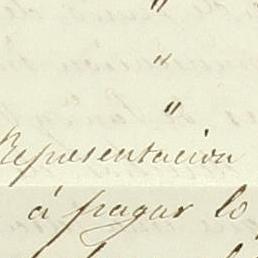 "
"
"
Representacion
á pagar lo